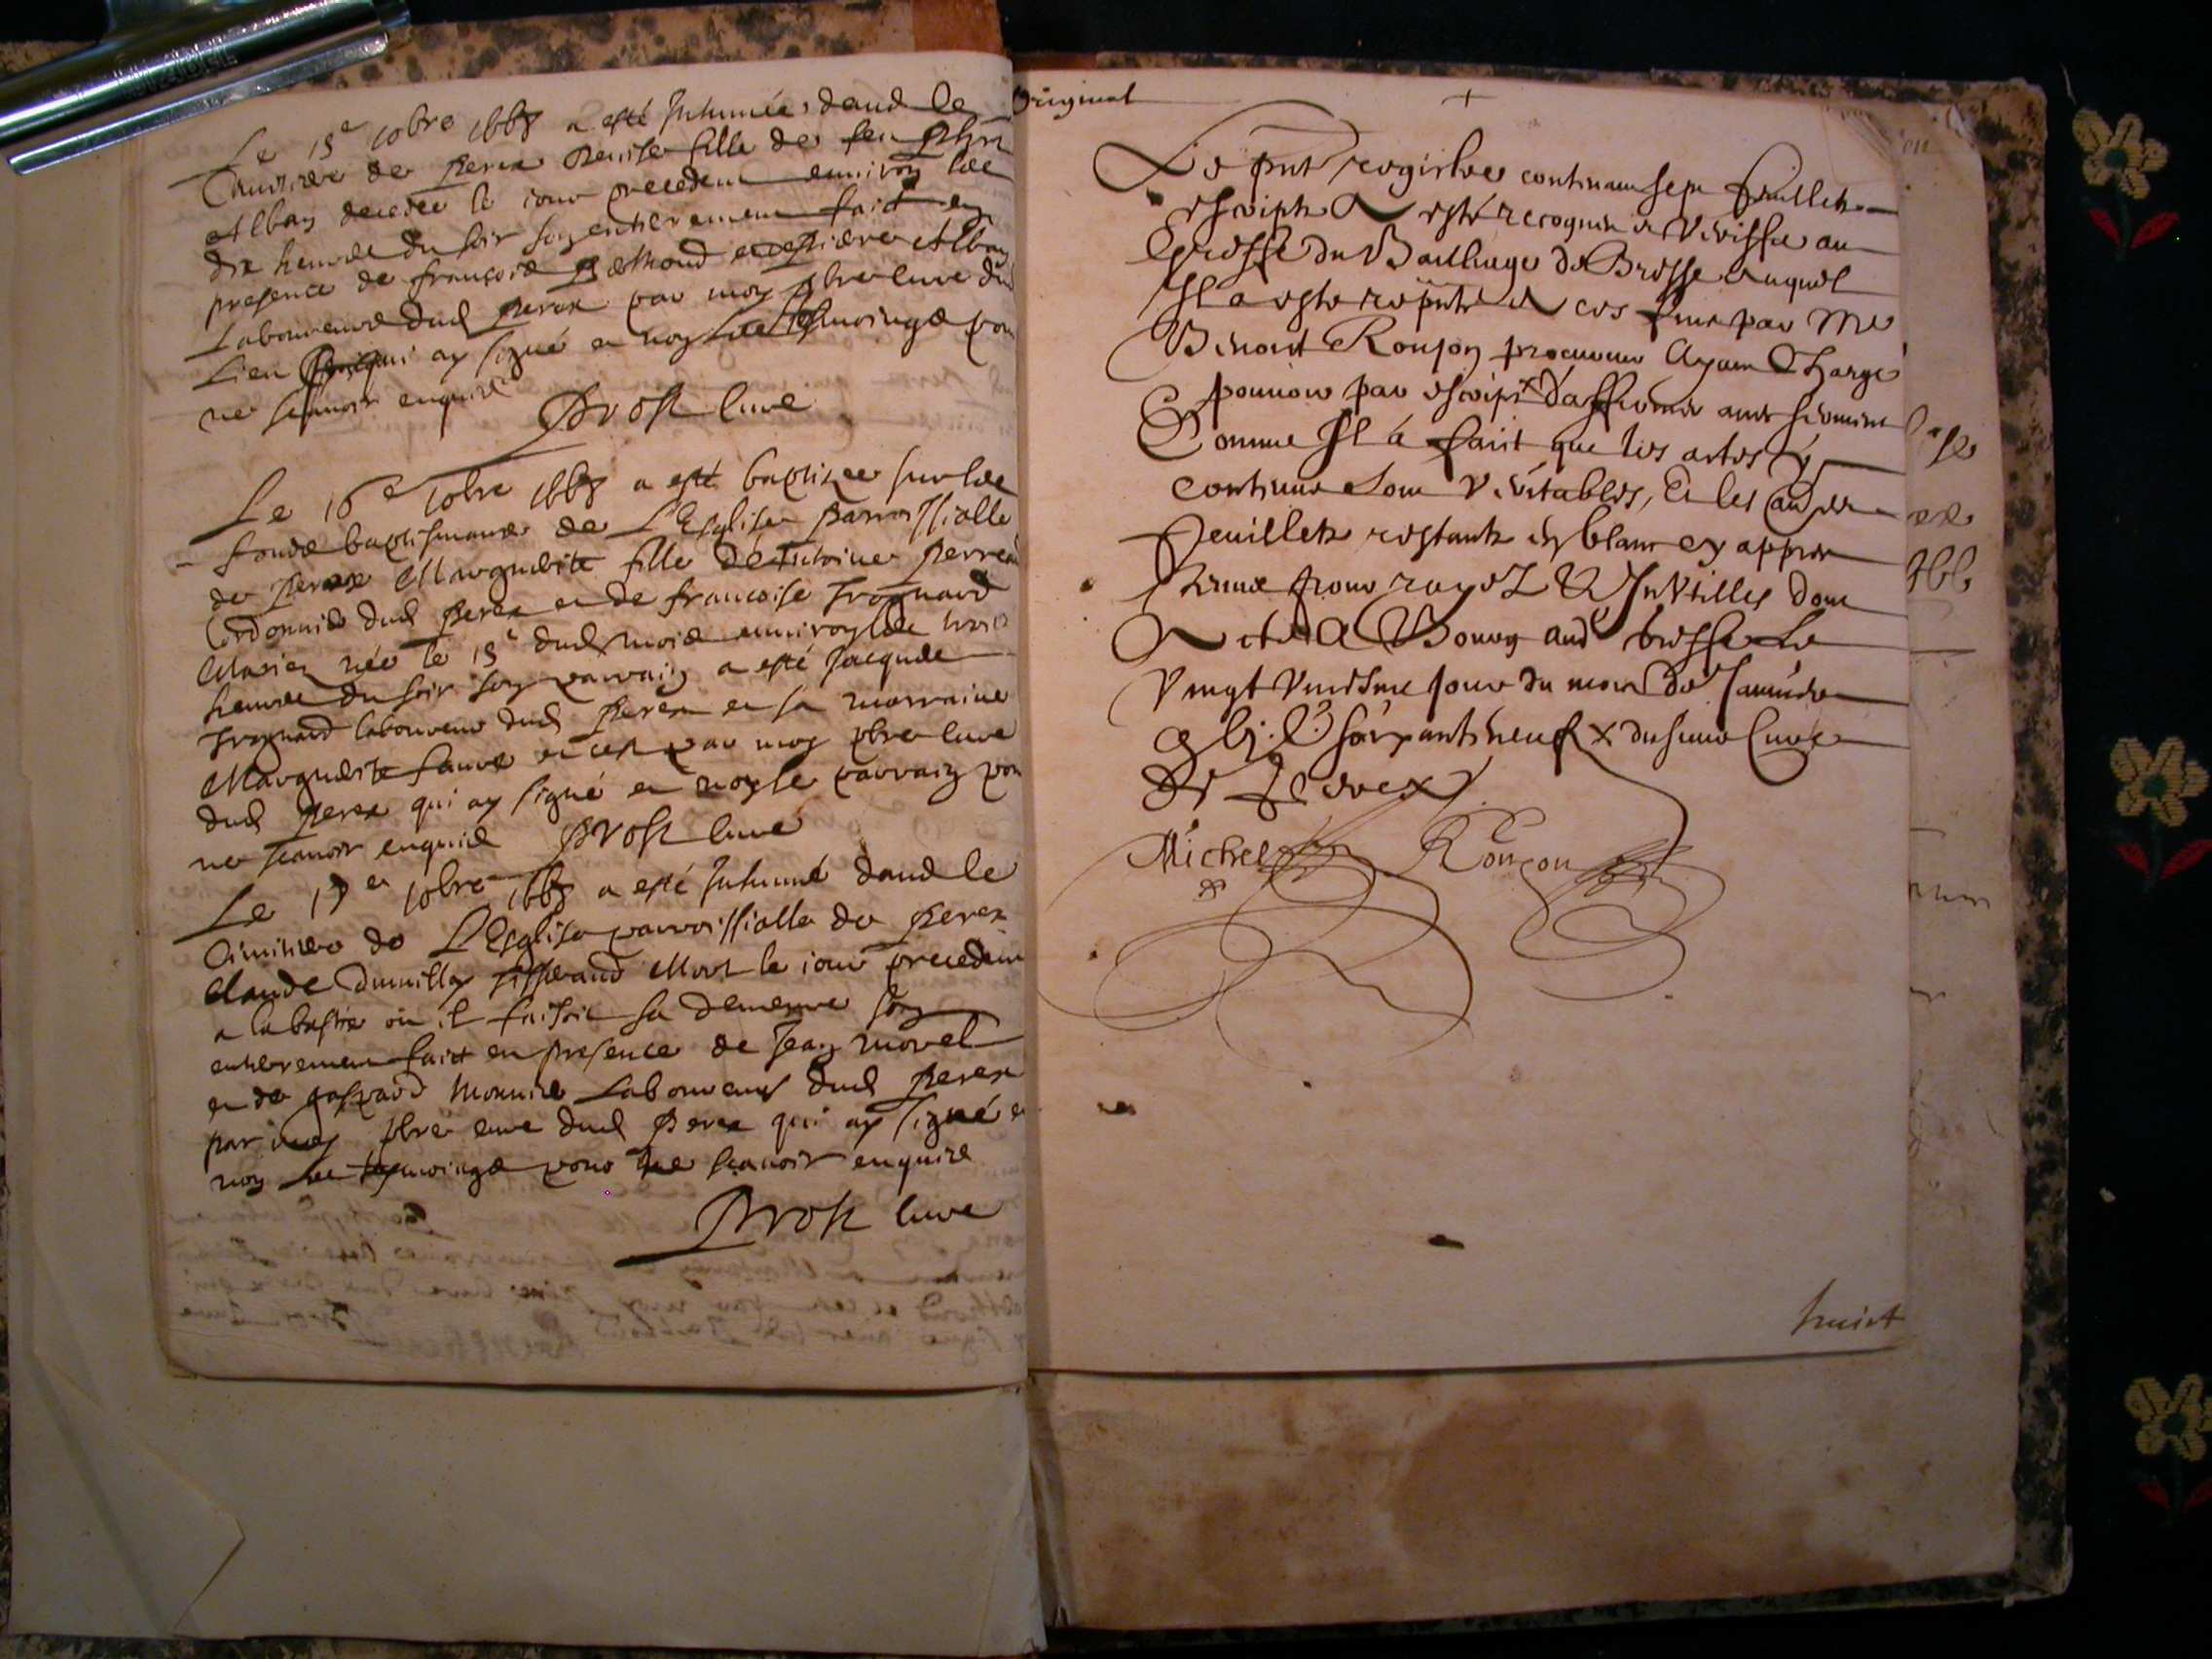 Le 15e 10bre 1668 a esté Inhumée dans le
Cimitiere de perex denise fille de feu
Alban decedee le iour precedent environ les
dix heures du soir son enterrement faict en
presence de françois et pierre Alban
Laboureurs dud perex par moy pbre cure dud
Lieu qui ay signé et non les tesmoings pour
ne scavoir enquis
Prost cure
Le 16e 10bre 1668 a esté baptizee sur les
fonds baptismaux de L'Esglise parroissialle
de perex Margueritte fille de Antoine perret
Cordonnier dud perex et de francoise
née le 15e dud mois environ les trois
heures du soir son parrain a esté Jacques
laboureur dud perex et sa marraine
Marguerite et ce par moy pbre cure
dud perex qui ay signé et non le parrain pour
ne scavoir enquis Prost cure
Le 17e 10bre 1668 a esté Inhumé dans le
Cimitiere de L'Esglise parroissialle de perex
Claude tisserand Mort le iour precedent
a la bastie où il faisoit sa demeure son
enterrement faict en presence de Jean morel
et de gaspard monnier Laboureurs dud perex
par moy pbre cure dud perex qui ay signé et
non les tesmoings pour ne scavoir enquis
Prost cure
Original
Le pnt registre contenant sept feuillets
escripts A esté recogneu et au
Greffe du Bailliage de Bresse auquel
Il a esté a ces fins par Me
Benoist Roujon procureur Ayant Charge
pouvoir par escript d'affirmer avec serment
Comme Il a faict que les actes y
contenus sont veritables, Et les
feuillets restants en blanc
pour rayez & Inutilles dont
Acte A Bourg aud bresse Le
Vingt Uniesme jour du mois de Janvier
soixante neuf x du sieur Curé
de perex
Michel Roujon
huict